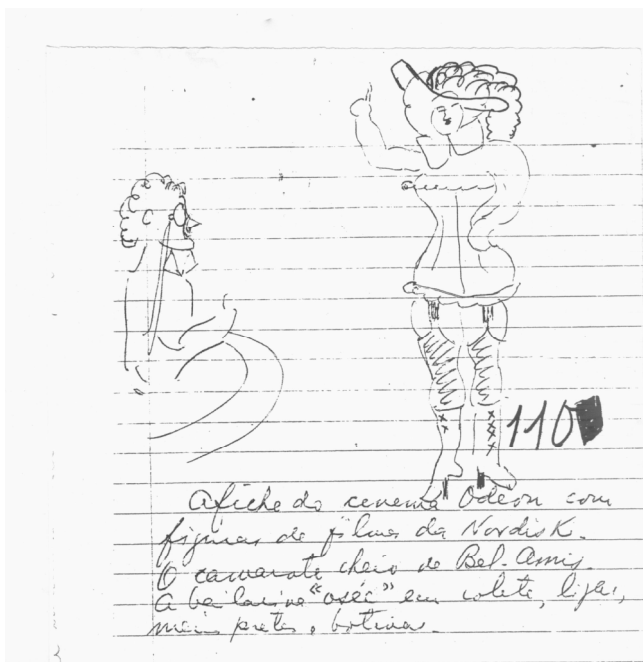 110
Afiche do cinema Odeon com
figuras de films da Nordisk.
O camarote cheio de Bel-Amis.
A bailarina "osée" em colete, ligas,
meias pretas, botinas.